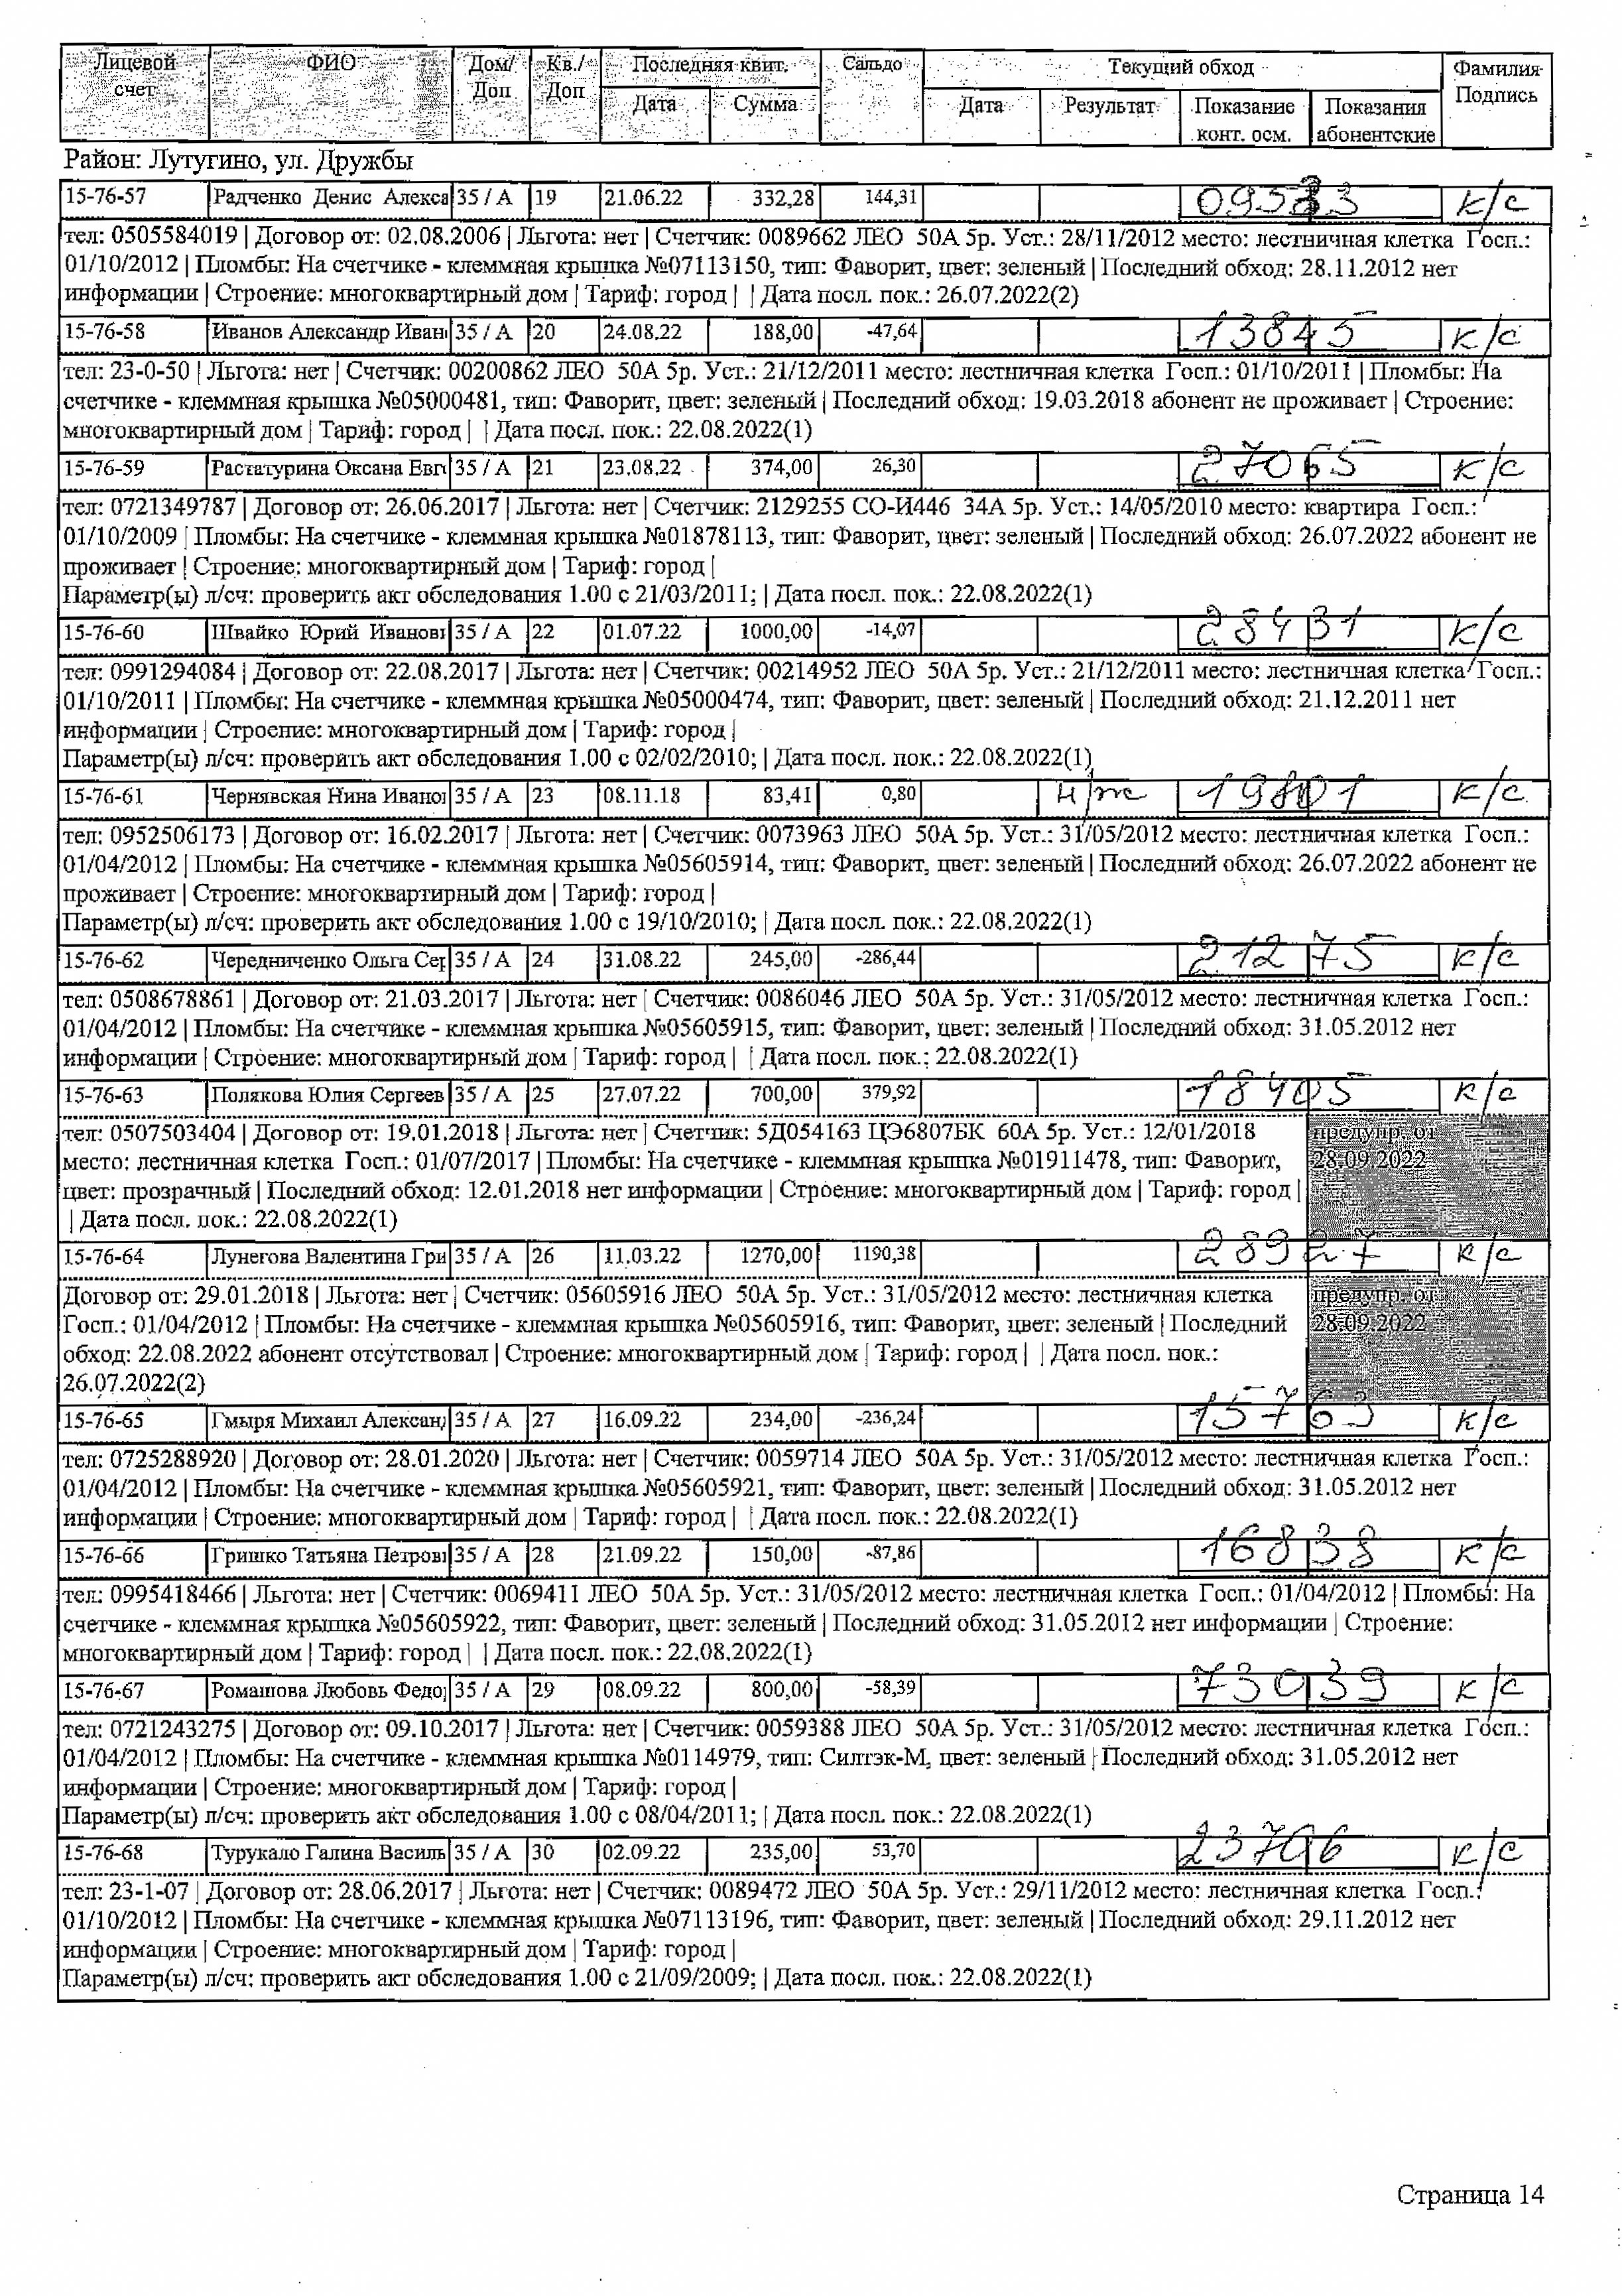 Лицевой счет | ФИО | Дом/ Доп | Кв./ Доп | Последняя квит. | Сальдо | Текущий обход | Фамилия Подпись
Дата | Сумма | Дата | Результат | Показание конт. осм. | Показания абонентские
Район: Лутугино, ул. Дружбы
15-76-57 | Радченко Денис Алекса | 35 / А | 19 | 21.06.22 | 332,28 | 144,31 | к/с
тел: 0505584019 | Договор от: 02.08.2006 | Льгота: нет | Счетчик: 0089662 ЛЕО 50А 5р. Уст.: 28/11/2012 место: лестничная клетка Госп.:
01/10/2012 | Пломбы: На счетчике - клеммная крышка №07113150, тип: Фаворит, цвет: зеленый | Последний обход: 28.11.2012 нет
информации | Строение: многоквартирный дом | Тариф: город | | Дата посл. пок.: 26.07.2022(2)
15-76-58 | Иванов Александр Иван | 35 / А | 20 | 24.08.22 | 188,00 | -47,64 | 13845 | к/с
тел: 23-0-50 | Льгота: нет | Счетчик: 00200862 ЛЕО 50А 5р. Уст.: 21/12/2011 место: лестничная клетка Госп.: 01/10/2011 | Пломбы: На
счетчике - клеммная крышка №05000481, тип: Фаворит, цвет: зеленый | Последний обход: 19.03.2018 абонент не проживает | Строение:
многоквартирный дом | Тариф: город | | Дата посл. пок.: 22.08.2022(1)
15-76-59 | Растатурина Оксана Евг | 35 / А | 21 | 23.08.22 | 374,00 | 26,30 | 27065 | к/с
тел: 0721349787 | Договор от: 26.06.2017 | Льгота: нет | Счетчик: 2129255 СО-И446 34А 5р. Уст.: 14/05/2010 место: квартира Госп.:
01/10/2009 | Пломбы: На счетчике - клеммная крышка №01878113, тип: Фаворит, цвет: зеленый | Последний обход: 26.07.2022 абонент не
проживает | Строение: многоквартирный дом | Тариф: город |
Параметр(ы) л/сч: проверить акт обследования 1.00 с 21/03/2011; | Дата посл. пок.: 22.08.2022(1)
15-76-60 | Швайко Юрий Иванові | 35 / А | 22 | 01.07.22 | 1000,00 | -14,07 | 28431 | к/с
тел: 0991294084 | Договор от: 22.08.2017 | Льгота: нет | Счетчик: 00214952 ЛЕО 50А 5р. Уст.: 21/12/2011 место: лестничная клетка Госп.:
01/10/2011 | Пломбы: На счетчике - клеммная крышка №05000474, тип: Фаворит, цвет: зеленый | Последний обход: 21.12.2011 нет
информации | Строение: многоквартирный дом | Тариф: город |
Параметр(ы) л/сч: проверить акт обследования 1.00 с 02/02/2010; | Дата посл. пок.: 22.08.2022(1)
15-76-61 | Чернявская Нина Ивано | 35 / А | 23 | 08.11.18 | 83,41 | 0,80 | н/ж | 19801 | к/с
тел: 0952506173 | Договор от: 16.02.2017 | Льгота: нет | Счетчик: 0073963 ЛЕО 50А 5р. Уст.: 31/05/2012 место: лестничная клетка Госп.:
01/04/2012 | Пломбы: На счетчике - клеммная крышка №05605914, тип: Фаворит, цвет: зеленый | Последний обход: 26.07.2022 абонент не
проживает | Строение: многоквартирный дом | Тариф: город |
Параметр(ы) л/сч: проверить акт обследования 1.00 с 19/10/2010; | Дата посл. пок.: 22.08.2022(1)
15-76-62 | Чередниченко Ольга Сер | 35 / А | 24 | 31.08.22 | 245,00 | -286,44 | 21275 | к/с
тел: 0508678861 | Договор от: 21.03.2017 | Льгота: нет | Счетчик: 0086046 ЛЕО 50А 5р. Уст.: 31/05/2012 место: лестничная клетка Госп.:
01/04/2012 | Пломбы: На счетчике - клеммная крышка №05605915, тип: Фаворит, цвет: зеленый | Последний обход: 31.05.2012 нет
информации | Строение: многоквартирный дом | Тариф: город | | Дата посл. пок.: 22.08.2022(1)
15-76-63 | Полякова Юлия Сергеев | 35 / А | 25 | 27.07.22 | 700,00 | 379,92 | 18405 | к/с
тел: 0507503404 | Договор от: 19.01.2018 | Льгота: нет | Счетчик: 5Д054163 ЦЭ6807БК 60А 5р. Уст.: 12/01/2018 | предупр. от
место: лестничная клетка Госп.: 01/07/2017 | Пломбы: На счетчике - клеммная крышка №01911478, тип: Фаворит, | 28.09.2022
цвет: прозрачный | Последний обход: 12.01.2018 нет информации | Строение: многоквартирный дом | Тариф: город |
| Дата посл. пок.: 22.08.2022(1)
15-76-64 | Лунегова Валентина Гри | 35 / А | 26 | 11.03.22 | 1270,00 | 1190,38 | 28927 | к/с
Договор от: 29.01.2018 | Льгота: нет | Счетчик: 05605916 ЛЕО 50А 5р. Уст.: 31/05/2012 место: лестничная клетка | предупр. от
Госп.: 01/04/2012 | Пломбы: На счетчике - клеммная крышка №05605916, тип: Фаворит, цвет: зеленый | Последний | 28.09.2022
обход: 22.08.2022 абонент отсутствовал | Строение: многоквартирный дом | Тариф: город | | Дата посл. пок.:
26.07.2022(2)
15-76-65 | Гмыря Михаил Алексан | 35 / А | 27 | 16.09.22 | 234,00 | -236,24 | 15763 | к/с
тел: 0725288920 | Договор от: 28.01.2020 | Льгота: нет | Счетчик: 0059714 ЛЕО 50А 5р. Уст.: 31/05/2012 место: лестничная клетка Госп.:
01/04/2012 | Пломбы: На счетчике - клеммная крышка №05605921, тип: Фаворит, цвет: зеленый | Последний обход: 31.05.2012 нет
информации | Строение: многоквартирный дом | Тариф: город | | Дата посл. пок.: 22.08.2022(1)
15-76-66 | Гришко Татьяна Петрові | 35 / А | 28 | 21.09.22 | 150,00 | -87,86 | 16838 | к/с
тел: 0995418466 | Льгота: нет | Счетчик: 0069411 ЛЕО 50А 5р. Уст.: 31/05/2012 место: лестничная клетка Госп.: 01/04/2012 | Пломбы: На
счетчике - клеммная крышка №05605922, тип: Фаворит, цвет: зеленый | Последний обход: 31.05.2012 нет информации | Строение:
многоквартирный дом | Тариф: город | | Дата посл. пок.: 22.08.2022(1)
15-76-67 | Ромашова Любовь Федо | 35 / А | 29 | 08.09.22 | 800,00 | -58,39 | 73039 | к/с
тел: 0721243275 | Договор от: 09.10.2017 | Льгота: нет | Счетчик: 0059388 ЛЕО 50А 5р. Уст.: 31/05/2012 место: лестничная клетка Госп.:
01/04/2012 | Пломбы: На счетчике - клеммная крышка №0114979, тип: Силтэк-М, цвет: зеленый | Последний обход: 31.05.2012 нет
информации | Строение: многоквартирный дом | Тариф: город |
Параметр(ы) л/сч: проверить акт обследования 1.00 с 08/04/2011; | Дата посл. пок.: 22.08.2022(1)
15-76-68 | Турукало Галина Василь | 35 / А | 30 | 02.09.22 | 235,00 | 53,70 | 23706 | к/с
тел: 23-1-07 | Договор от: 28.06.2017 | Льгота: нет | Счетчик: 0089472 ЛЕО 50А 5р. Уст.: 29/11/2012 место: лестничная клетка Госп.:
01/10/2012 | Пломбы: На счетчике - клеммная крышка №07113196, тип: Фаворит, цвет: зеленый | Последний обход: 29.11.2012 нет
информации | Строение: многоквартирный дом | Тариф: город |
Параметр(ы) л/сч: проверить акт обследования 1.00 с 21/09/2009; | Дата посл. пок.: 22.08.2022(1)
Страница 14